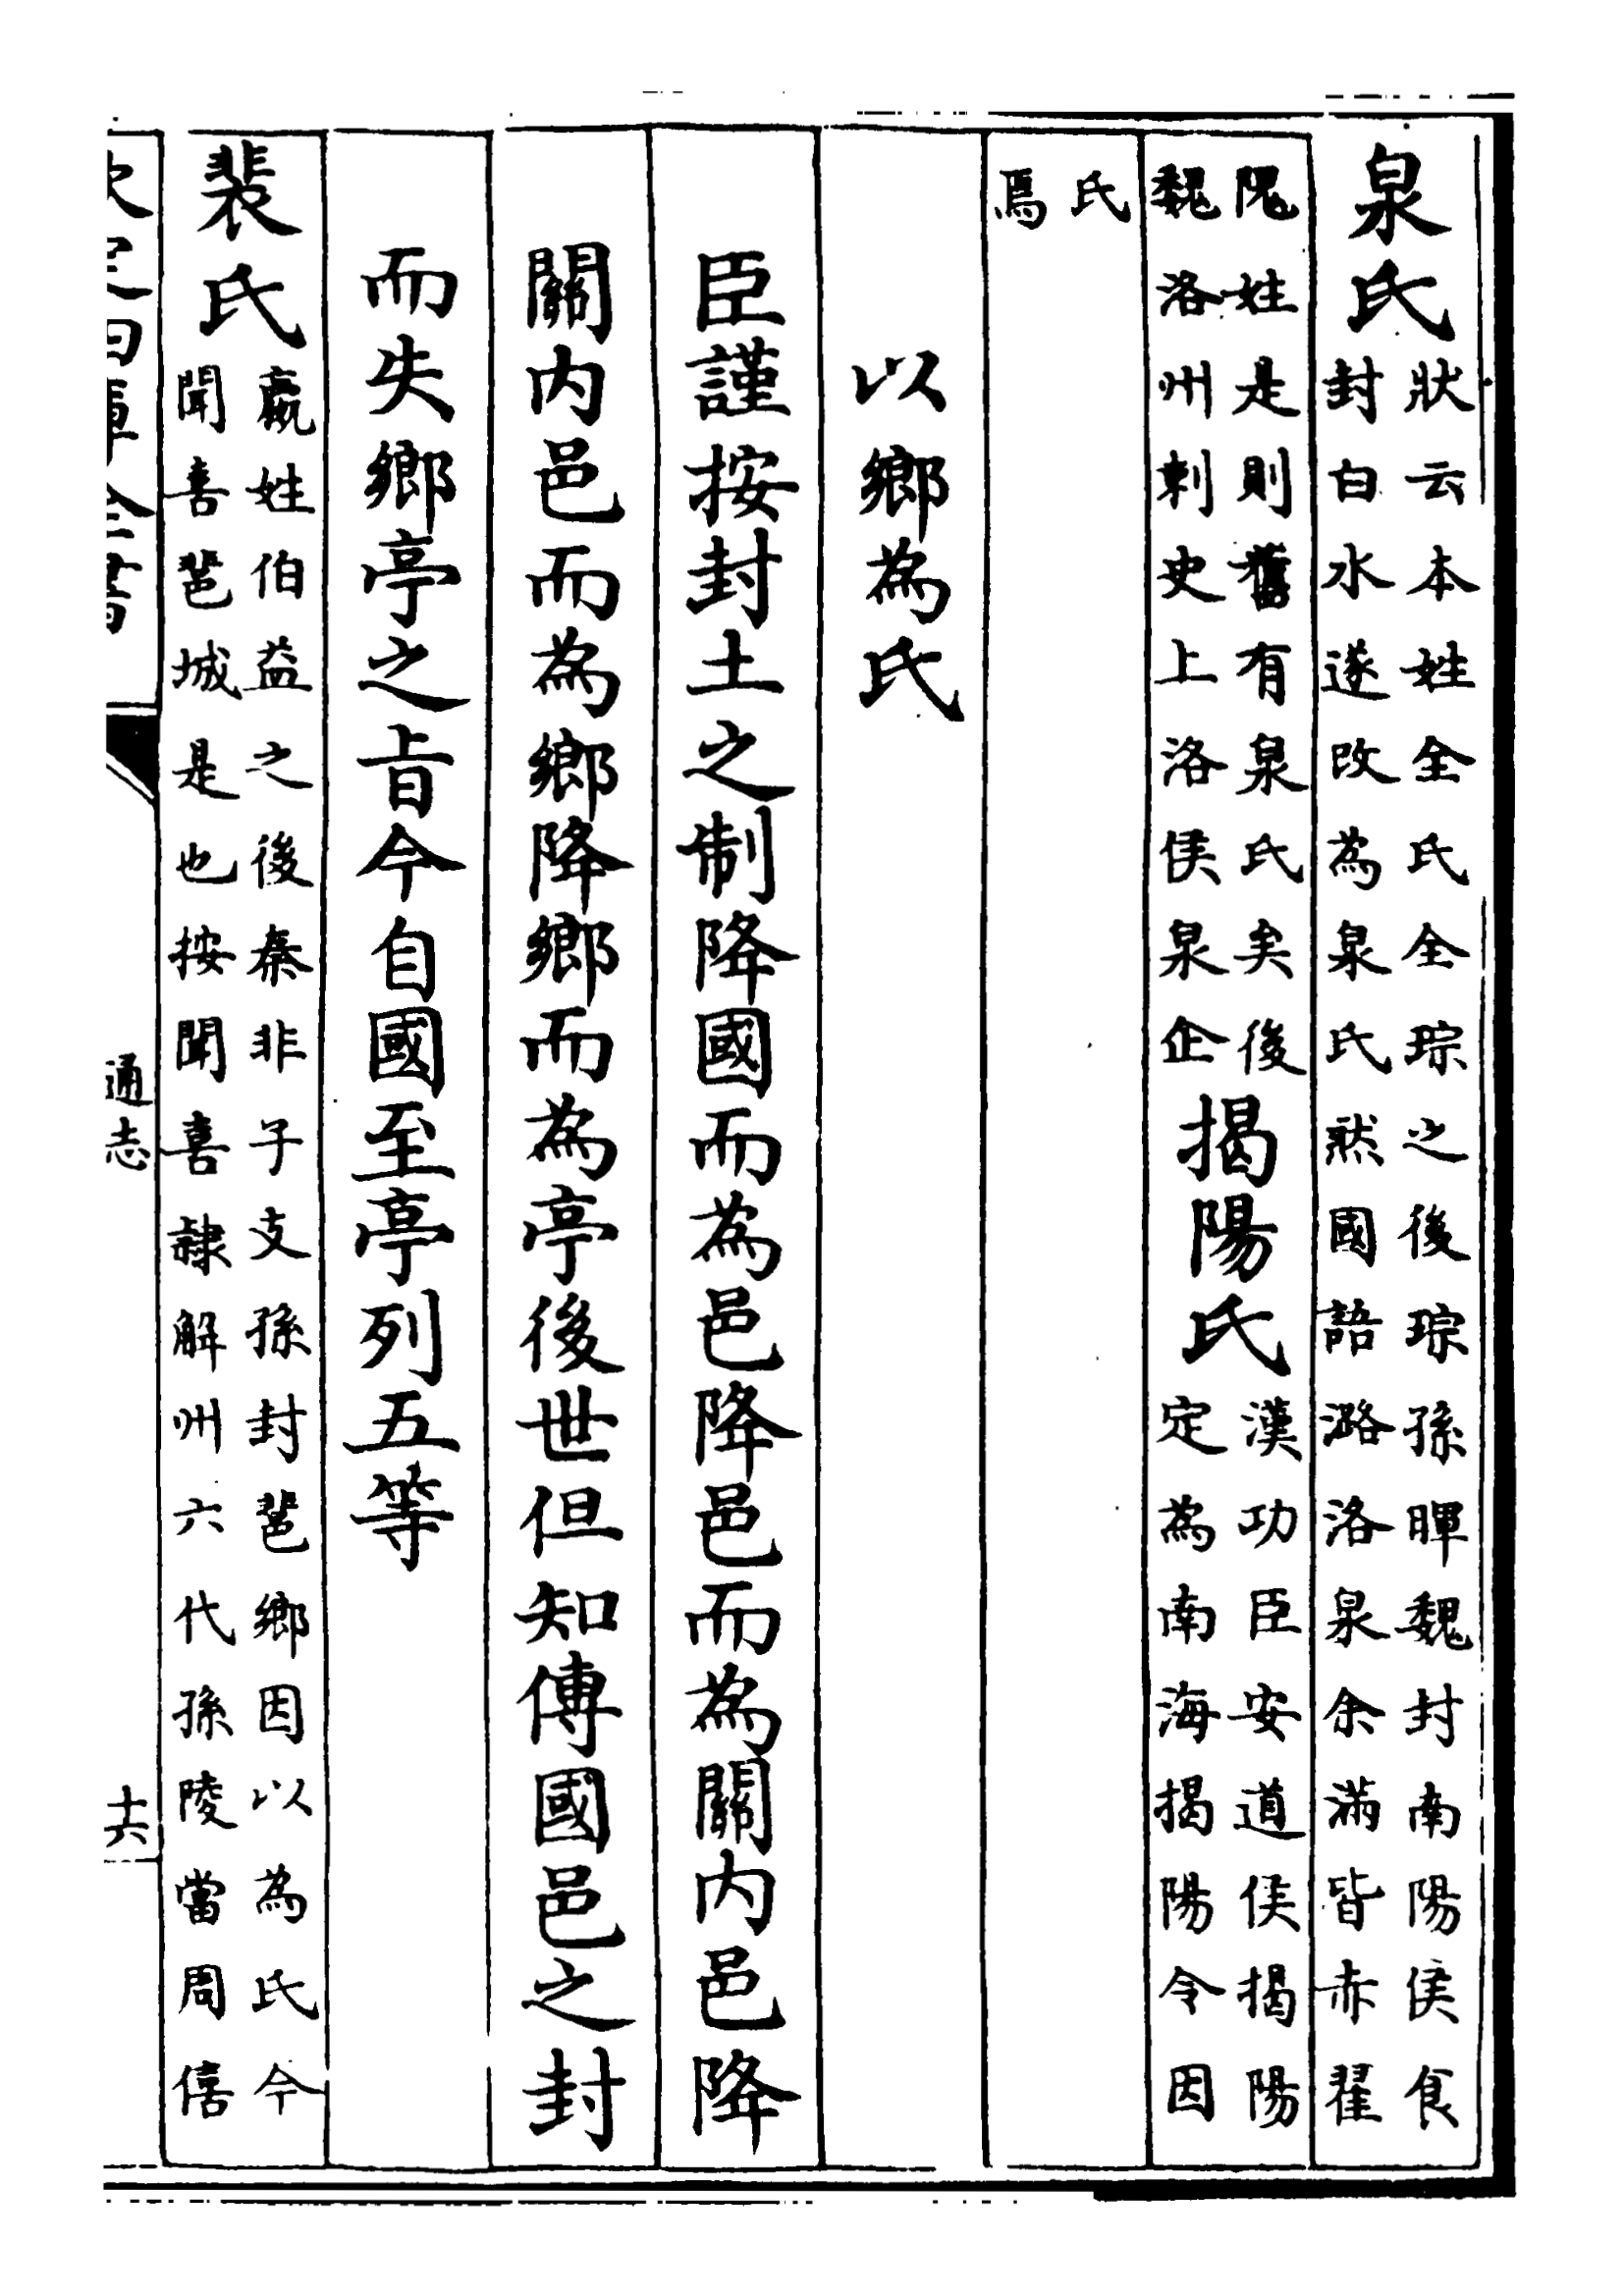 泉氏
狀云本姓全氏全琮之後琮孫暉魏封南陽侯食
封白水遂改為泉氏然國語潞洛泉余滿皆赤翟
隗姓是則舊有泉氏矣後
魏洛州刺史上洛侯泉企
揭陽氏
漢功臣安道侯揭陽
定為南海揭陽令因
氏
焉
以鄉為氏
臣謹按封土之制降國而為邑降邑而為關内邑降
關内邑而為鄉降鄉而為亭後世但知傳國邑之封
而失鄉亭之旨今自國至亭列五等
裴氏
嬴姓伯益之後秦非子支孫封𨛬鄉因以為氏今
聞喜𨛬城是也按聞喜隸解州六代孫陵當周僖
欽定四庫全書
通志
十六